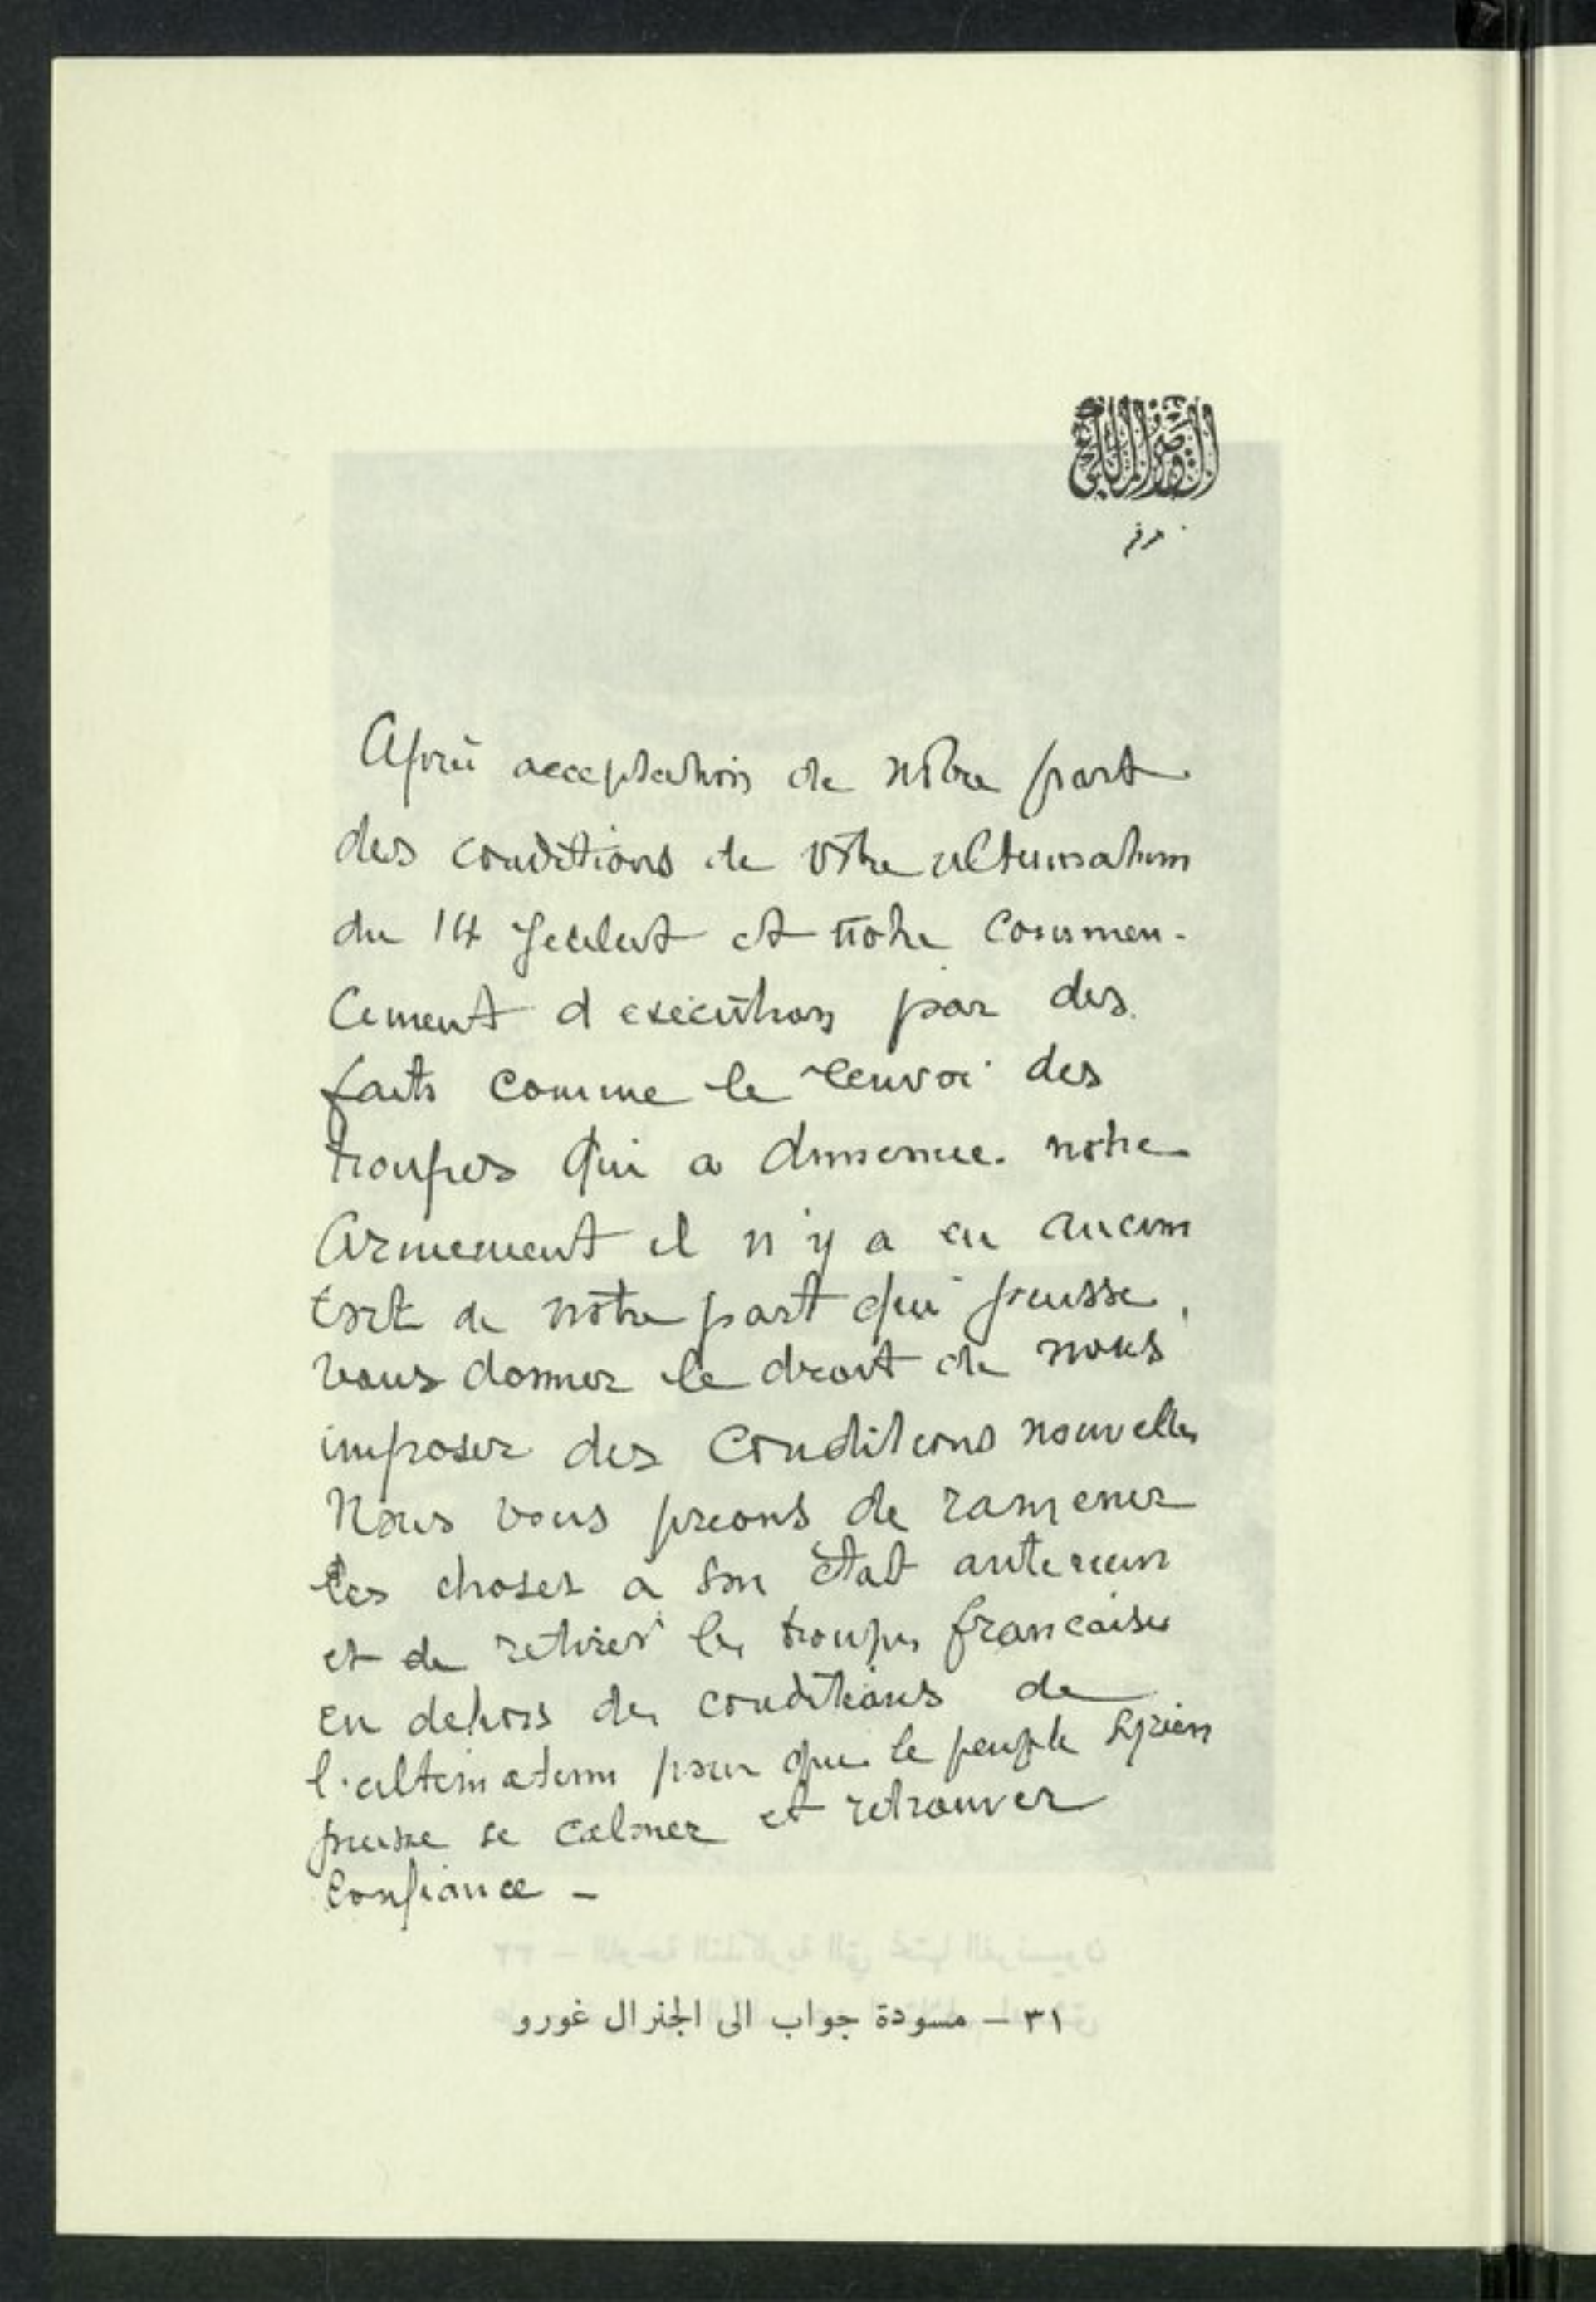 Après acceptation de nôtre part
des conditions de vôtre ultimatum
du 14 Juillet et nôtre commen-
cement d execution par des
faits comme le renvoi des
troupes qui a diminuée notre
armement il n'y a eu aucun
tort de nôtre part qui puisse
vous donner le droit de nous
imposer des conditions nouvelles
Nous vous prions de ramener
les choses à son état anterieur
et de retirer les troupes francaises
en dehors des conditions de
l'ultimatum pour que le peuple Syrien
puisse se calmer et retrouver
confiance -
٣١ – مسودة جواب الى الجنرال غورو